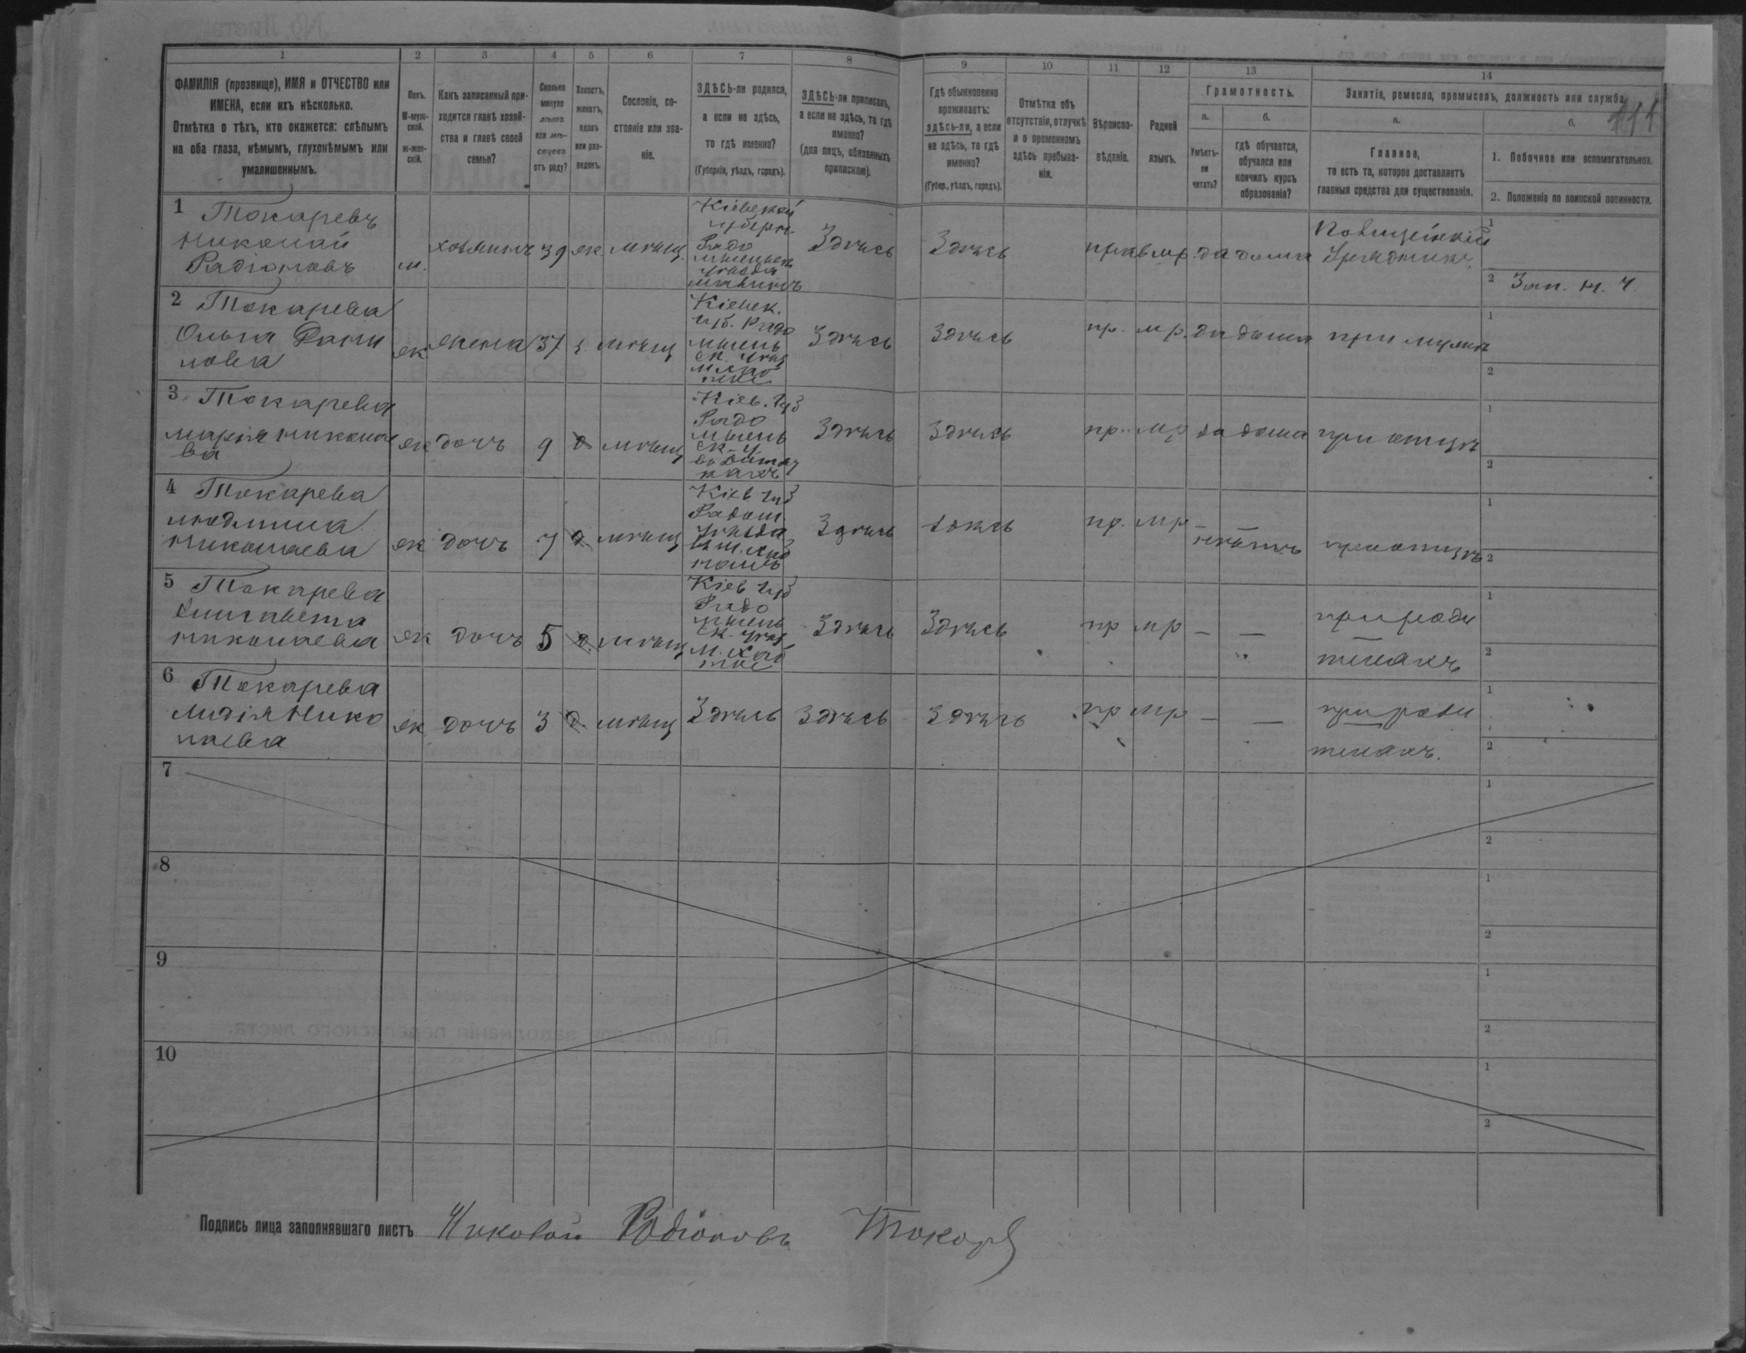 1 2 3 4 5 6 7 8 9 10 11 12 13 14
ФАМИЛІЯ (прозвище), ИМЯ и ОТЧЕСТВО или
ИМЕНА, если ихъ нѣсколько.
Отмѣтка о тѣхъ, кто окажется: слѣпымъ
на оба глаза, нѣмымъ, глухонѣмымъ или
умалишеннымъ.
Полъ.
М-муж-
ской.
ж-жен-
скій.
Какъ записанный при-
ходится главѣ хозяй-
ства и главѣ своей
семьи?
Сколько
минуло
лѣтъ
или мѣ-
сяцевъ
отъ роду?
Холостъ,
женатъ,
вдовъ
или раз-
веденъ.
Сословіе, со-
стояніе или зва-
ніе.
ЗДѢСЬ-ли родился,
а если не здѣсь,
то гдѣ именно?
(Губернія, уѣздъ, городъ).
ЗДѢСЬ-ли приписанъ,
а если не здѣсь, то гдѣ
именно?
(для лицъ, обязанныхъ
припискою).
Гдѣ обыкновенно
проживаетъ:
здѣсь-ли, а если
не здѣсь, то гдѣ
именно?
(Губер., уѣздъ, городъ).
Отмѣтка объ
отсутствіи, отлучкѣ
и о временномъ
здѣсь пребыва-
ніи.
Вѣроиспо-
вѣданіе.
Родной
языкъ.
Грамотность.
а.
Умѣетъ-
ли
читать?
б.
гдѣ обучается,
обучался или
кончилъ курсъ
образованія?
Занятіе, ремесло, промыселъ, должность или служба.
а.
Главное,
то есть то, которое доставляетъ
главныя средства для существованія.
б.
1. Побочное или вспомогательное.
2. Положеніе по воинской повинности.
1 Токаревъ
Николай
Радіоновъ
м. хозяинъ 39 ж мѣщ
Кіевской
губерн.
Радо
мысльск
уѣзда
Здѣсь Здѣсь прав мр. да дома
Полицейскій
Урядникъ
1
2
2 Токарева
Ольга Дани
лова
ж жена 37 з мѣщ
Кіевск.
губ. Радо
мысль
ск. уѣз
Здѣсь Здѣсь пр. мр. да дома при мужѣ
1
2
3 Токарева
Марія Никола
ва
ж дочь 9 д мѣщ
Кіев. губ
Радо
мысль
ск. у
Здѣсь Здѣсь пр. мр да дома при отцѣ
1
2
4 Токарева
Людмила
Николаева
ж дочь 7 д. мѣщ
Кіев губ
Радом
уѣзда
Здѣсь Здѣсь пр. мр – нѣтъ при отцѣ
1
2
5 Токарева
Елисавета
Николаева
ж дочь 5 д. мѣщ
Кіев губ
Радо
мысль
ск. уѣз
Здѣсь Здѣсь пр мр – –
при роди
теляхъ
1
2
6 Токарева
Лидія Нико
лаева
ж дочь 3 д. мѣщ Здѣсь Здѣсь Здѣсь пр мр – –
при роди
теляхъ.
1
2
7
1
2
8
1
2
9
1
2
10
1
2
Подпись лица заполнявшаго листъ Николай Радіоновъ Токарев